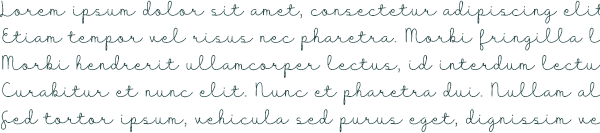 Lorem ipsum dolor sit amet, consectetur adipiscing elit
Etiam tempor vel risus nec pharetra. Morbi fringilla l
Morbi hendrerit ullamcorper lectus, id interdum lectu
Curabitur et nunc elit. Nunc et pharetra dui. Nullam al
Sed tortor ipsum, vehicula sed purus eget, dignissim ve